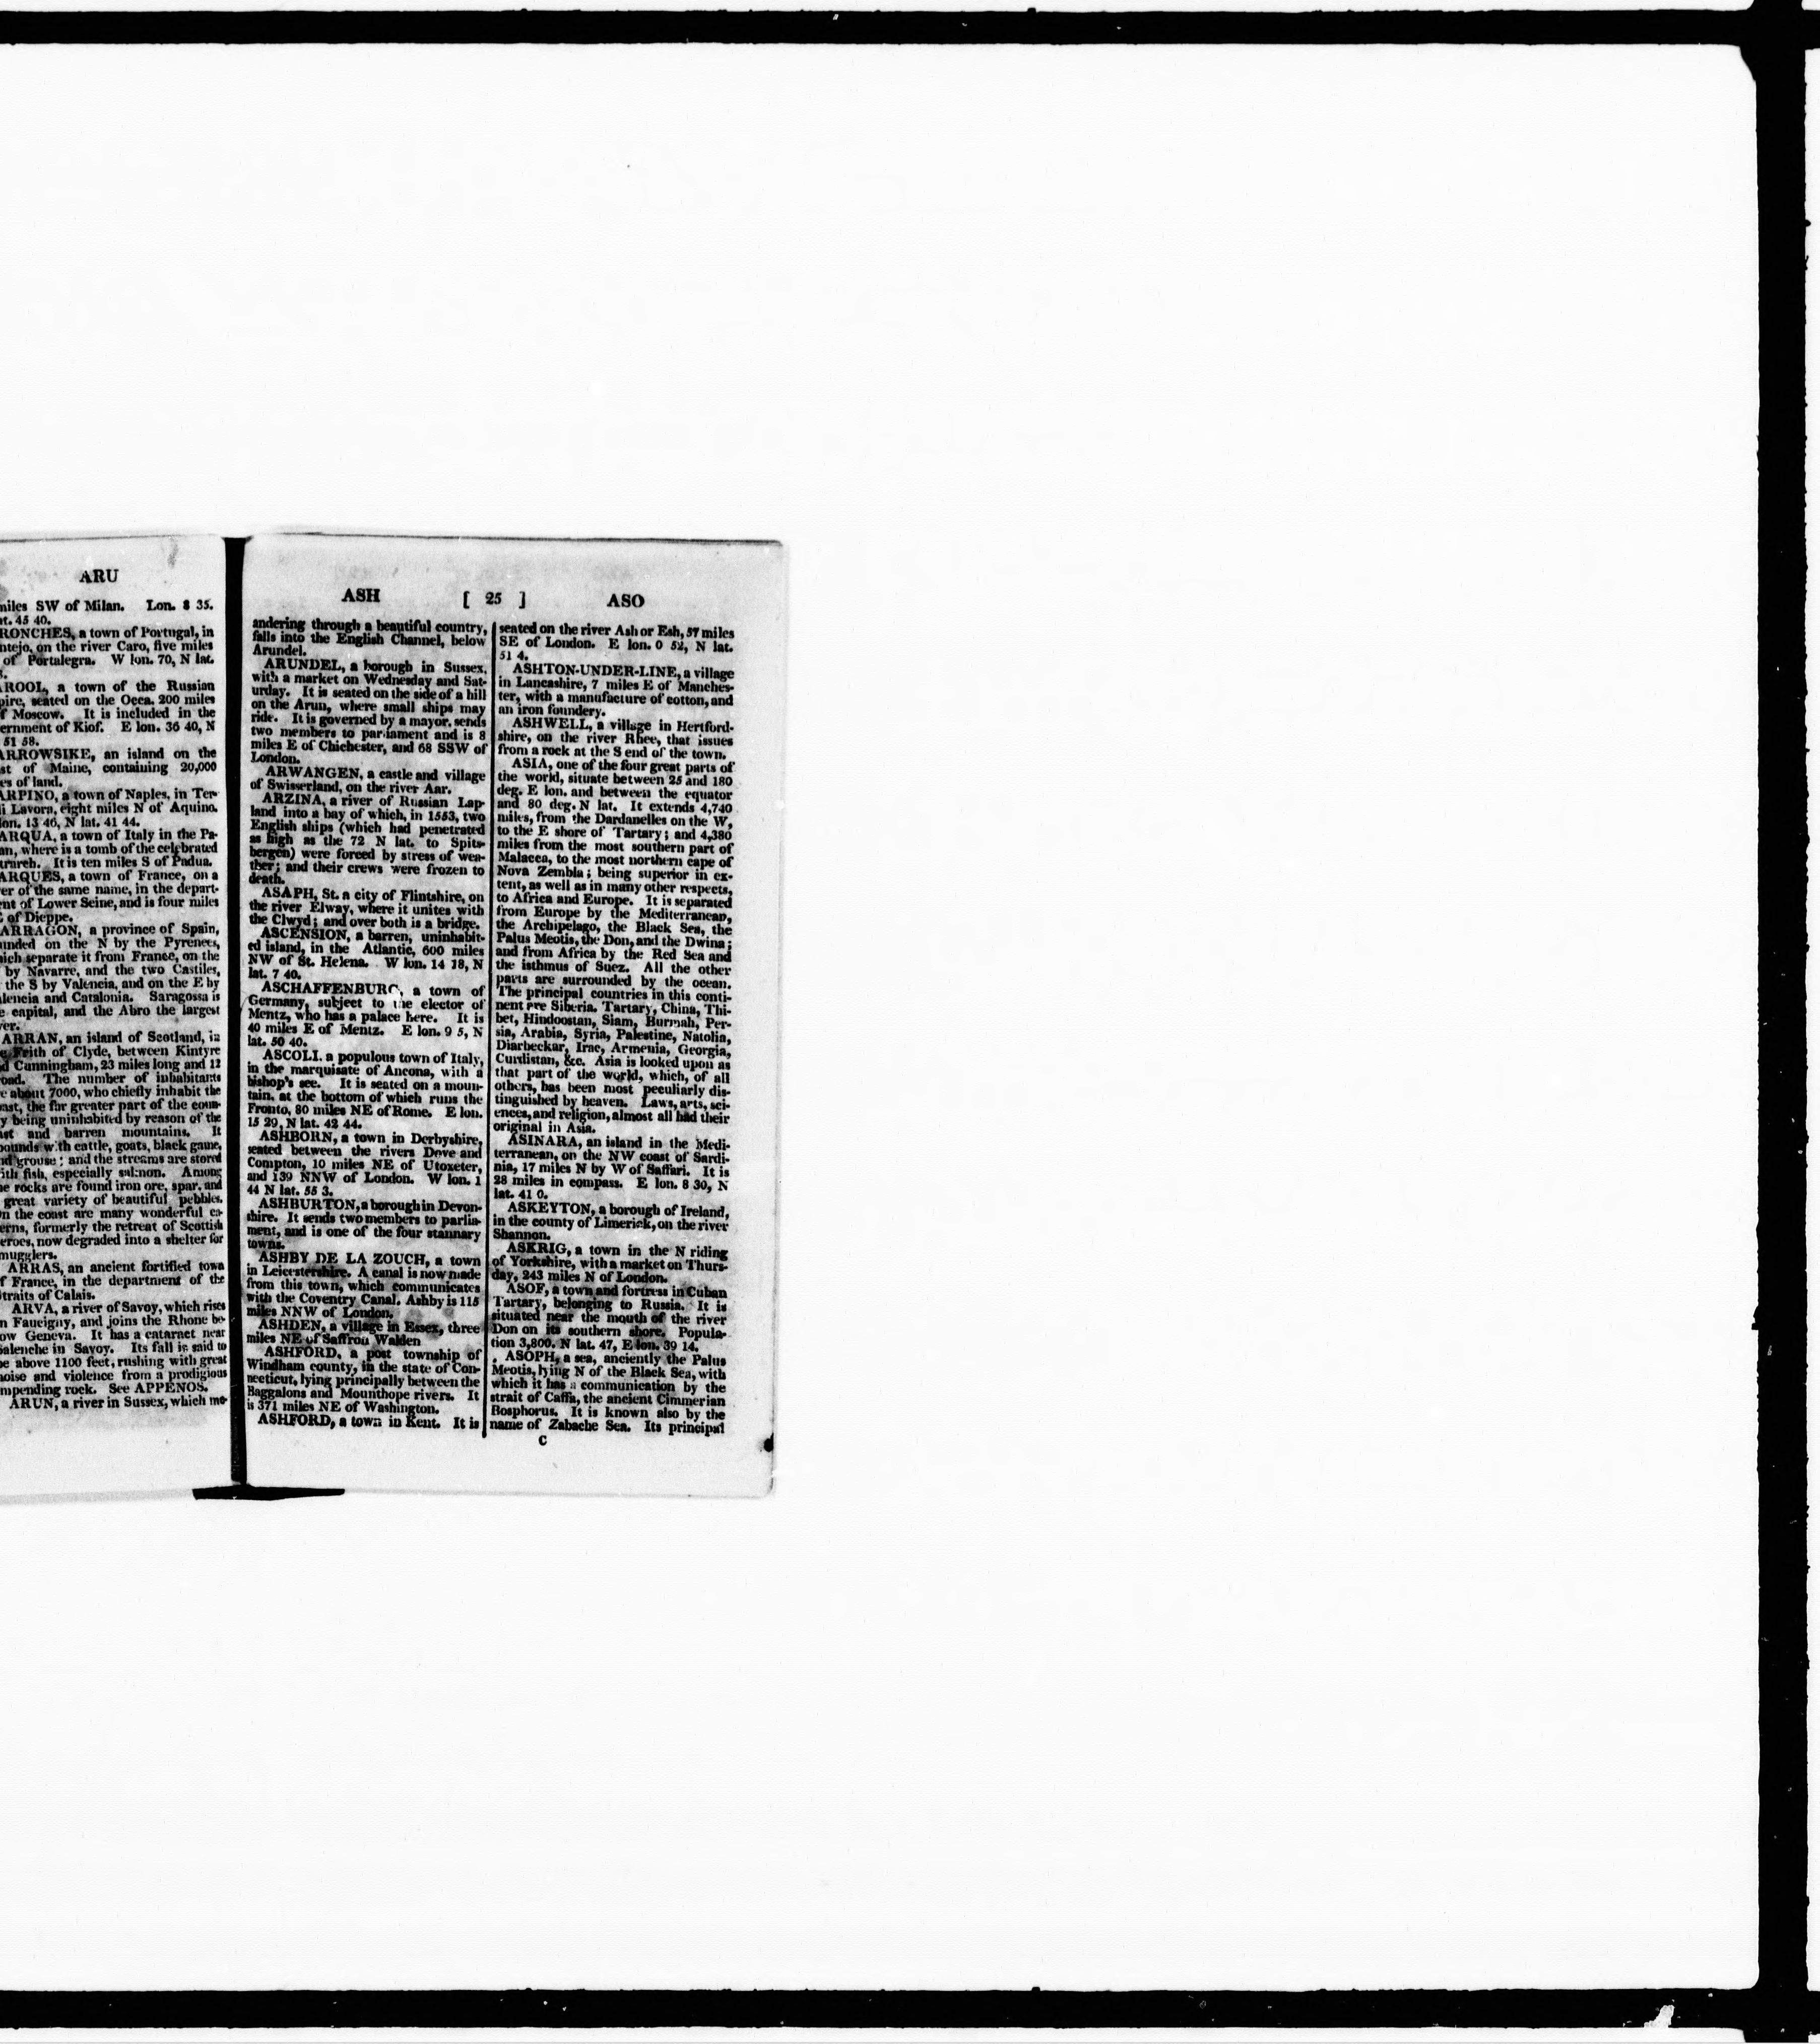 ARU
miles SW of Milan. Lon. 8 35.
at. 45 40.
RONCHES, a town of Portugal, in
ntejo, on the river Caro, five miles
of Portalegra. W lon. 70, N lat.
AROOL, a town of the Russian
pire, seated on the Occa. 200 miles
f Moscow. It is included in the
ernment of Kiof. E lon. 36 40, N
51 58.
ARROWSIKE, an island on the
st of Maine, containing 20,000
es of land.
ARPINO, a town of Naples, in Ter-
di Lavora, eight miles N of Aquino.
lon. 13 46, N lat. 41 44.
ARQUA, a town of Italy in the Pa-
an, where is a tomb of the celebrated
trarch. It is ten miles S of Padua.
ARQUES, a town of France, on a
er of the same name, in the depart-
ent of Lower Seine, and is four miles
of Dieppe.
ARRAGON, a province of Spain,
unded on the N by the Pyrenees,
hich separate it from France, on the
by Navarre, and the two Castiles,
the S by Valencia, and on the E by
alencia and Catalonia. Saragossa is
e capital, and the Abro the largest
ver.
ARRAN, an island of Scotland, in
e Frith of Clyde, between Kintyre
d Cunningham, 23 miles long and 12
oad. The number of inhabitants
e about 7000, who chiefly inhabit the
oast, the far greater part of the coun-
y being uninhabited by reason of the
ast and barren mountains. It
bounds with cattle, goats, black game,
nd grouse; and the streams are stored
ith fish, especially salmon. Among
he rocks are found iron ore, spar, and
great variety of beautiful pebbles.
n the coast are many wonderful ca-
erns, formerly the retreat of Scottish
eroes, now degraded into a shelter for
mugglers.
ARRAS, an ancient fortified town
f France, in the department of the
Straits of Calais.
ARVA, a river of Savoy, which rises
n Faucigny, and joins the Rhone be-
ow Geneva. It has a cataract near
Salenche in Savoy. Its fall is said to
be above 1100 feet, rushing with great
noise and violence from a prodigious
mpending rock. See APPENOS.
ARUN, a river in Sussex, which me-
ASH [ 25 ] ASO
andering through a beautiful country,
falls into the English Channel, below
Arundel.
ARUNDEL, a borough in Sussex,
with a market on Wednesday and Sat-
urday. It is seated on the side of a hill
on the Arun, where small ships may
ride. It is governed by a mayor, sends
two members to parliament and is 8
miles E of Chichester, and 68 SSW of
London.
ARWANGEN, a castle and village
of Swisserland, on the river Aar.
ARZINA, a river of Russian Lap-
land into a bay of which, in 1553, two
English ships (which had penetrated
as high as the 72 N lat. to Spits-
bergen) were forced by stress of wea-
ther; and their crews were frozen to
death.
ASAPH, St. a city of Flintshire, on
the river Elway, where it unites with
the Clwyd; and over both is a bridge.
ASCENSION, a barren, uninhabit-
ed island, in the Atlantic, 600 miles
NW of St. Helena. W lon. 14 18, N
lat. 7 40.
ASCHAFFENBURG, a town of
Germany, subject to the elector of
Mentz, who has a palace here. It is
40 miles E of Mentz. E lon. 9 5, N
lat. 50 40.
ASCOLI. a populous town of Italy,
in the marquisate of Ancona, with a
bishop's see. It is seated on a moun-
tain, at the bottom of which runs the
Fronto, 80 miles NE of Rome. E lon.
15 29, N lat. 42 44.
ASHBORN, a town in Derbyshire,
seated between the rivers Dove and
Compton, 10 miles NE of Utoxeter,
and 139 NNW of London. W lon. 1
44 N lat. 55 3.
ASHBURTON, a borough in Devon-
shire. It sends two members to parlia-
ment, and is one of the four stannary
towns.
ASHBY DE LA ZOUCH, a town
in Leicestershire. A canal is now made
from this town, which communicates
with the Coventry Canal. Ashby is 115
miles NNW of London.
ASHDEN, a village in Essex, three
miles NE of Saffron Walden
ASHFORD, a post township of
Windham county, in the state of Con-
necticut, lying principally between the
Baggalons and Mounthope rivers. It
is 371 miles NE of Washington.
ASHFORD, a town in Kent. It is
seated on the river Ash or Esh, 57 miles
SE of London. E lon. 0 52, N lat.
51 4.
ASHTON-UNDER-LINE, a village
in Lancashire, 7 miles E of Manches-
ter, with a manufacture of cotton, and
an iron foundery.
ASHWELL, a village in Hertford-
shire, on the river Rhee, that issues
from a rock at the S end of the town.
ASIA, one of the four great parts of
the world, situate between 25 and 180
deg. E lon. and between the equator
and 80 deg. N lat. It extends 4,740
miles, from the Dardanelles on the W,
to the E shore of Tartary; and 4,380
miles from the most southern part of
Malacca, to the most northern cape of
Nova Zembla; being superior in ex-
tent, as well as in many other respects,
to Africa and Europe. It is separated
from Europe by the Mediterranean,
the Archipelago, the Black Sea, the
Palus Meotis, the Don, and the Dwina;
and from Africa by the Red Sea and
the isthmus of Suez. All the other
parts are surrounded by the ocean.
The principal countries in this conti-
nent are Siberia. Tartary, China, Thi-
bet, Hindoostan, Siam, Burmah, Per-
sia, Arabia, Syria, Palestine, Natolia,
Diarbeckar, Irac, Armenia, Georgia,
Curdistan, &c. Asia is looked upon as
that part of the world, which, of all
others, has been most peculiarly dis-
tinguished by heaven. Laws, arts, sci-
ences, and religion, almost all had their
original in Asia.
ASINARA, an island in the Medi-
terranean, on the NW coast of Sardi-
nia, 17 miles N by W of Saffari. It is
28 miles in compass. E lon. 8 30, N
lat. 41 0.
ASKEYTON, a borough of Ireland,
in the county of Limerick, on the river
Shannon.
ASKRIG, a town in the N riding
of Yorkshire, with a market on Thurs-
day, 243 miles N of London.
ASOF, a town and fortress in Cuban
Tartary, belonging to Russia. It is
situated near the mouth of the river
Don on its southern shore. Popula-
tion 3,800. N lat. 47, E lon. 39 14.
ASOPH, a sea, anciently the Palus
Meotis, lying N of the Black Sea, with
which it has a communication by the
strait of Caffa, the ancient Cimmerian
Bosphorus. It is known also by the
name of Zabache Sea. Its principal
C